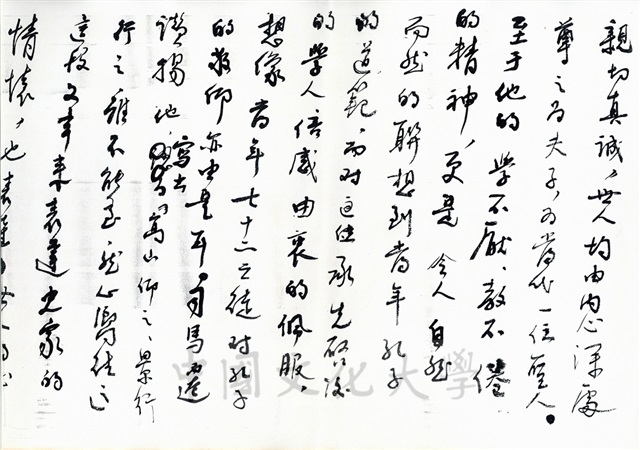 親切真誠，世人均由內心深處
尊之为夫子，为當代一位聖人。
至于他的學不厭、教不倦
的精神，更是令人自然
而然的聯想到當年孔子
的道範，而对這位承先啓後
的學人倍感由衷的佩服，
想像當年七十二之徒对孔子
的敬仰亦由是耳，司馬遷
讚揚他，寫出高山仰之、景行
行之雖不能至，然心嚮往之
這故文章来表達史家的
情懷，也表達
中國文化大學